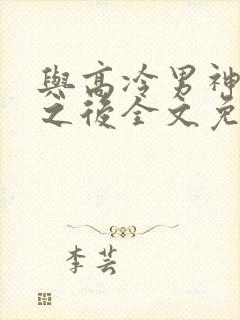 與高冷男神
之後全文免
李芸